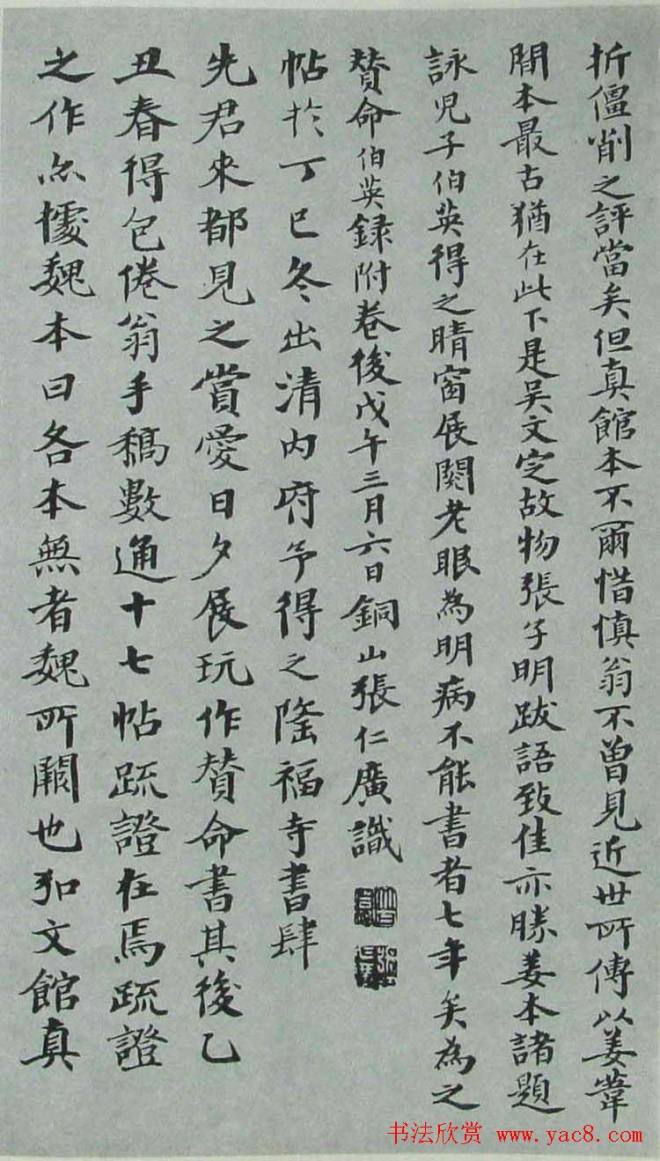 折僵削之評當矣但真館本不爾惜慎翁不曾見近世所傳以姜葦
間本最古猶在此下是吳文定故物張子明跋語致佳亦勝姜本諸題
詠児子伯英得之晴窗展閱老眼為明病不能書者七年矣為之
贊命伯英録附卷後戊午三月六日銅山張仁廣識
帖於丁巳冬出清內府予得之隆福寺書肆
先君來都見之賞愛日夕展玩作贊命書其後乙
丑春得包倦翁手稿數通十七帖疏證在焉疏證
之作亦據魏本曰各本無者魏所闕也弘文館真
书法欣赏 www.yac8.com